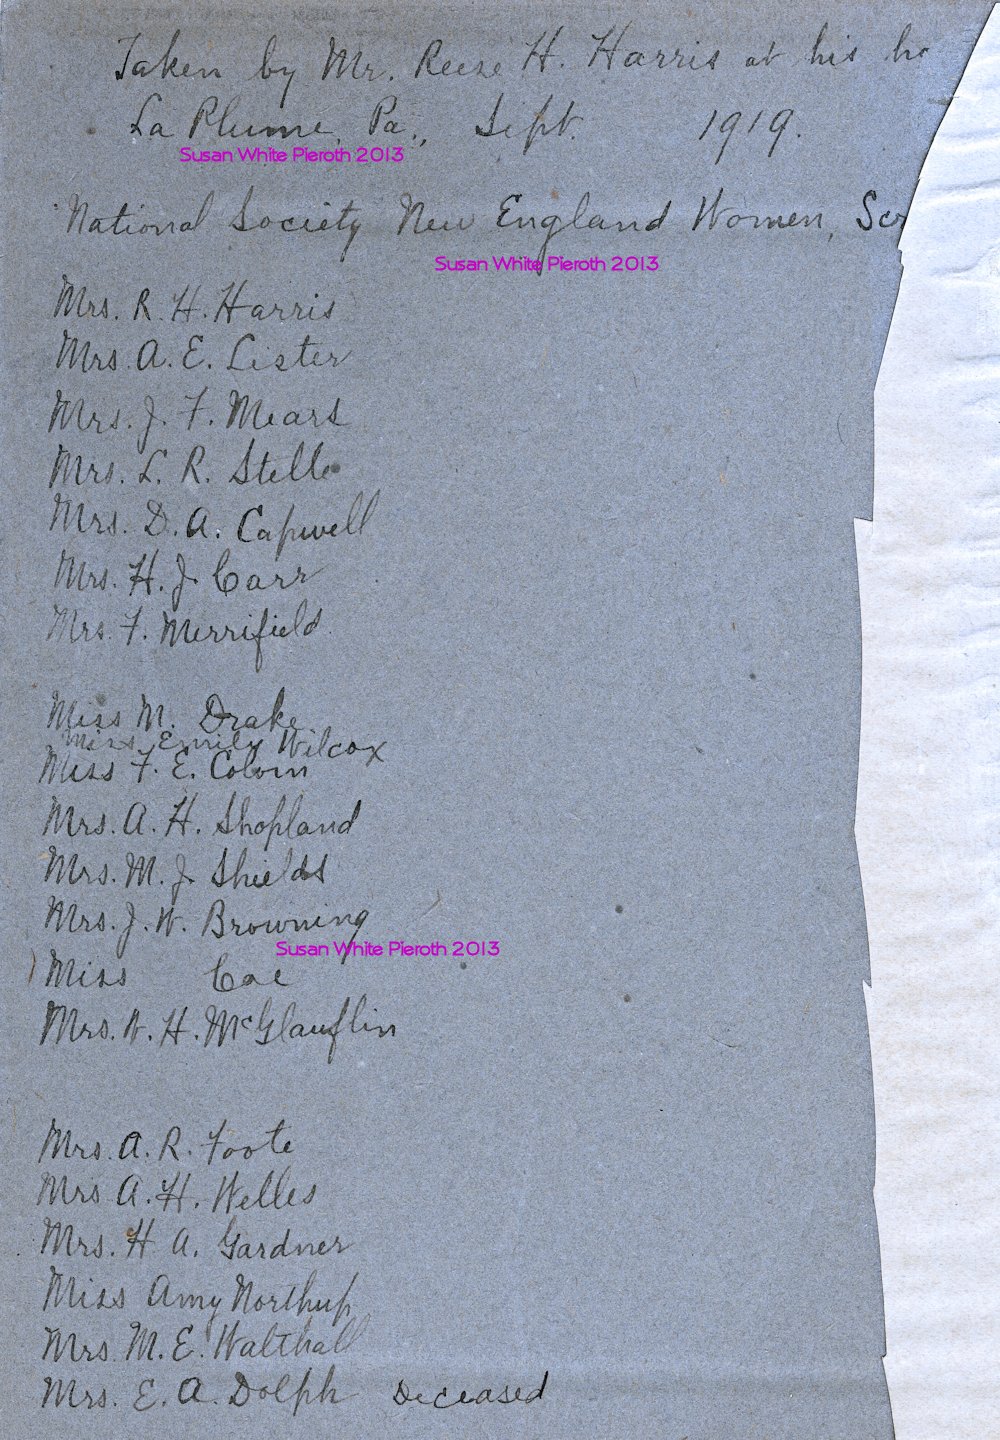 Taken by Mr. Reese H. Harris at his ho
La Plume, Pa., Sept. 1919.
Susan White Pieroth 2013
National Society New England Women, Scr
Susan White Pieroth 2013
Mrs. R. H. Harris
Mrs. A. E. Lister
Mrs. J. F. Mears
Mrs. L. R. Stelle
Mrs. D. A. Capwell
Mrs. H. J. Carr
Mrs. F. Merrifield.
Miss M. Drake
Miss Emily Wilcox
Miss F. E. Colvin
Mrs. A. H. Shopland
Mrs. M. J. Shields
Mrs. J. W. Browning
Susan White Pieroth 2013
Miss Coe
Mrs. W. H. McGlauflin
Mrs. A. R. Foote
Mrs A. H. Welles
Mrs. H A. Gardner
Miss Amy Northup
Mrs. M. E. Walthall
Mrs. E. A. Dolph Deceased